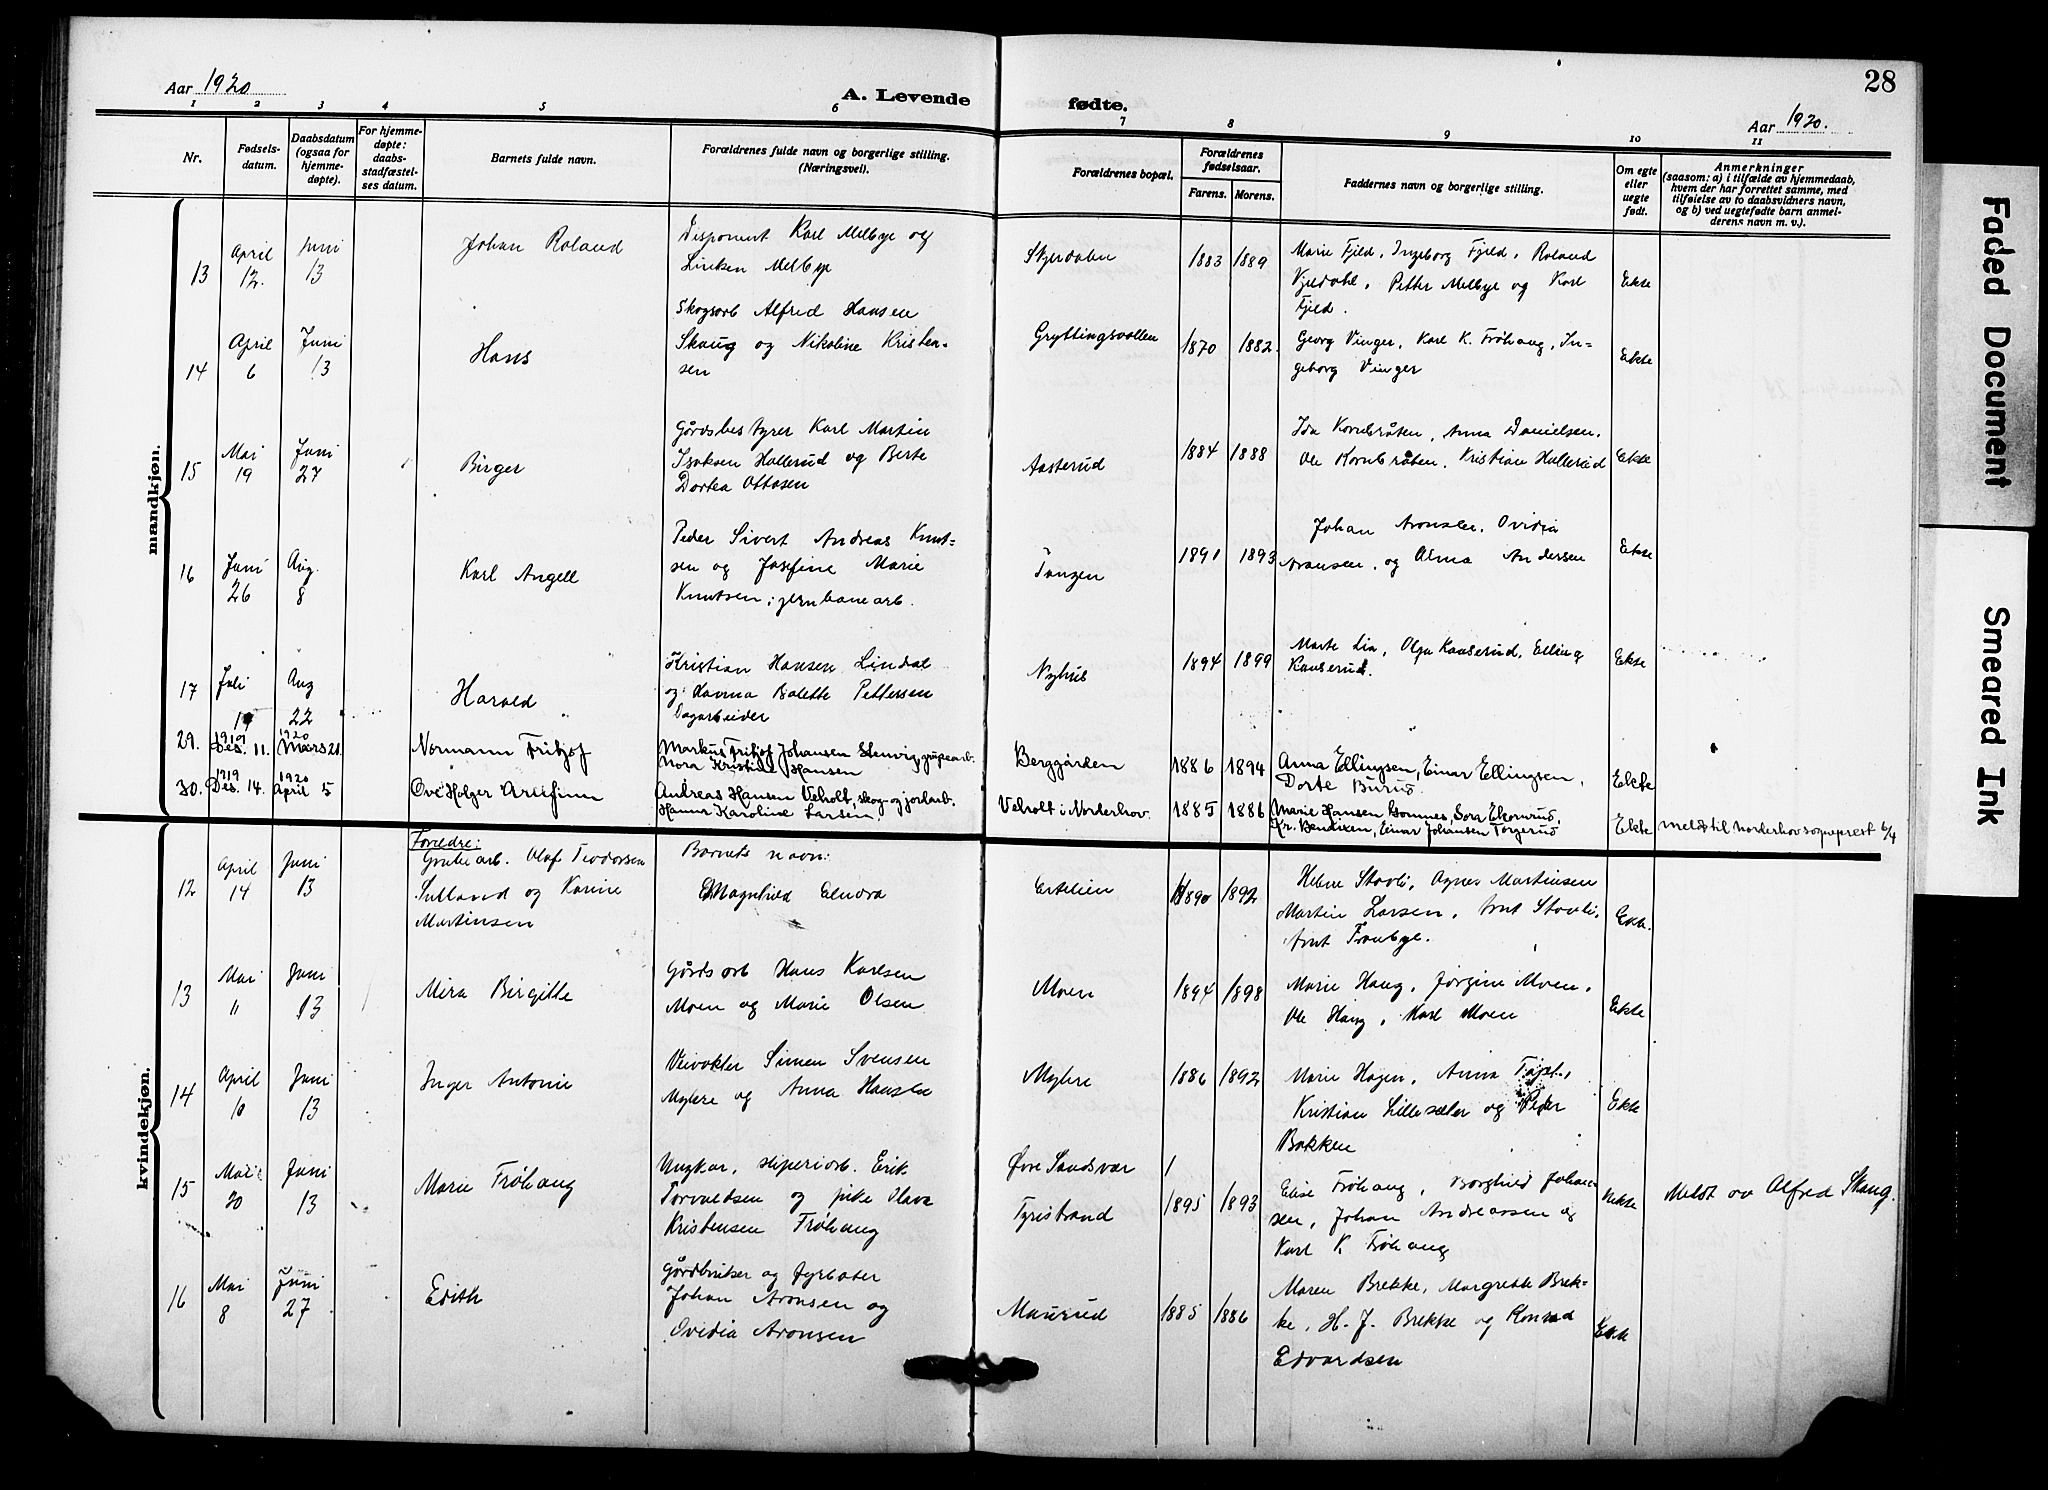 28
Aar 1920
A. Levende fødte.
Aar 1920.
1 2 3 4 5 6 7 8 9 10 11
Nr.
Fødsels-
datum.
Daabsdatum
(ogsaa for
hjemme-
døpte).
For hjemme-
døpte:
daabs-
stadfæstel-
ses datum.
Barnets fulde navn.
Forældrenes fulde navn og borgerlige stilling.
(Næringsvei).
Forældrenes bopæl.
Forældrenes
fødselsaar.
Farens. Morens.
Faddernes navn og borgerlige stilling.
Om egte
eller
uegte
født.
Anmerkninger
(saasom: a) i tilfælde av hjemmedaab,
hvem der har forrettet samme, med
tilføielse av to daabsvidners navn,
og b) ved uegtefødte barn anmel-
derens navn m. v.).
mandkjøn.
13
April
12.
Juni
13
Johan Roland
Disponent Karl Melbye og
Linken Melbye
Skjerdalen
1883 1889
Marie Fjeld, Ingeborg Fjeld, Roland
Kjeldahl, Petter Melbye og Karl
Fjeld.
Ekte
14
April
6
Juni
13
Hans
Skogsarb Alfred Hansen
Skaug og Nikoline Kristen-
sen
Gryttingsvollen
1870 1882.
Georg Vinger, Karl K. Frøhaug, In-
geborg Vinger
Ekte
15
Mai
19
Juni
27
Birger
Gårdsbestyrer Karl Martin
Isaksen Hallerud og Berte
Dortea Ottosen
Aasterud
1884 1888
Ida Kornbråten, Anna Danielsen,
Ole Kornbråten, Kristian Hallerud
Ekte
16
Juni
26
Aug.
8
Karl Angell
Peder Sivert Andreas Knut-
sen og Josefine Marie
Knutsen, jernbanearb.
Tangen
1891 1893
Johan Aronsen, Ovidia
Aronsen, og Alma Andersen
Ekte
17
Juli
19
Aug
22
Harald
Kristian Hansen Lindal
og Havma Balette Pettersen
Dagarbeider
Nyhus
1894 1899
Marte Lia, Olga Kauserud, Elling
Kauserud.
Ekte
29.
1919
Des. 11.
1920
Mars 21.
Normann Fritjof
Markus Fritjof Johansen Stenvig, grubearb.
Nora Kristine Hansen
Berggården
1886 1894
Anna Ellingsen, Einar Ellingsen,
Dorte Burud.
Ekte
30.
1919
Des. 14.
1920
April 5
Ove Holger Arnfinn
Andreas Hansen Veholt, skog og jordarb.
Hanna Karoline Larsen
Veholt i Norderhov.
1885 1886
Marie Hansen Bonnes, Sora Ekornrud,
Kr. Bendixen, Einar Johansen Torgerud
Ekte
meldt til Norderhov sogneprest 6/4
kvindekjøn.
12
April
14
Juni
13
Foreldre:
Grubearb. Olaf Teodorsen
Sulland og Karine
Martinsen
Barnets navn:
Magnhild Elnora
Ertelien
1890 1892
Helene Stovli, Agnes Martinsen
Martin Larsen, Arnt Stovli,
Arnt Tronbye.
Ekte.
13
Mai
11
Juni
13
Mira Birgitte
Gårdsarb Hans Karlsen
Moen og Marie Olsen
Moen
1894 1898
Marie Haug, Jørgine Moen,
Ole Haug, Karl Moen
Ekte
14
April
10
Juni
13
Inger Antonie
Veivokter Simen Svensen
Mylere og Anna Hansen
Mylere
1886 1892
Marie Hagen, Anna
Kristian Lillesæter og Peder
Bakken
Ekte
15
Mai
20
Juni
13
Marie Frøhaug
Ungkar, sliperiarb. Erik
Torvaldsen og pike Olava
Kristensen Frøhaug
Øvre Sandsvær
Tyristrand
1
1895 1893
Elise Frøhaug, Borghild Johan-
sen, Johan Andreassen og
Karl K Frøhaug
Uekte
Meldt av Alfred Skaug.
16
Mai
8
Juni
27
Edith
Gårdbruker og fyrbøter
Johan Aronsen og
Ovidia Aronsen
Maurud
1885 1886
Maren Brekke, Margrethe Brek-
ke, H. J. Brekke og Konrad
Edvardsen
Ekte
Faded Document
Smeared Ink